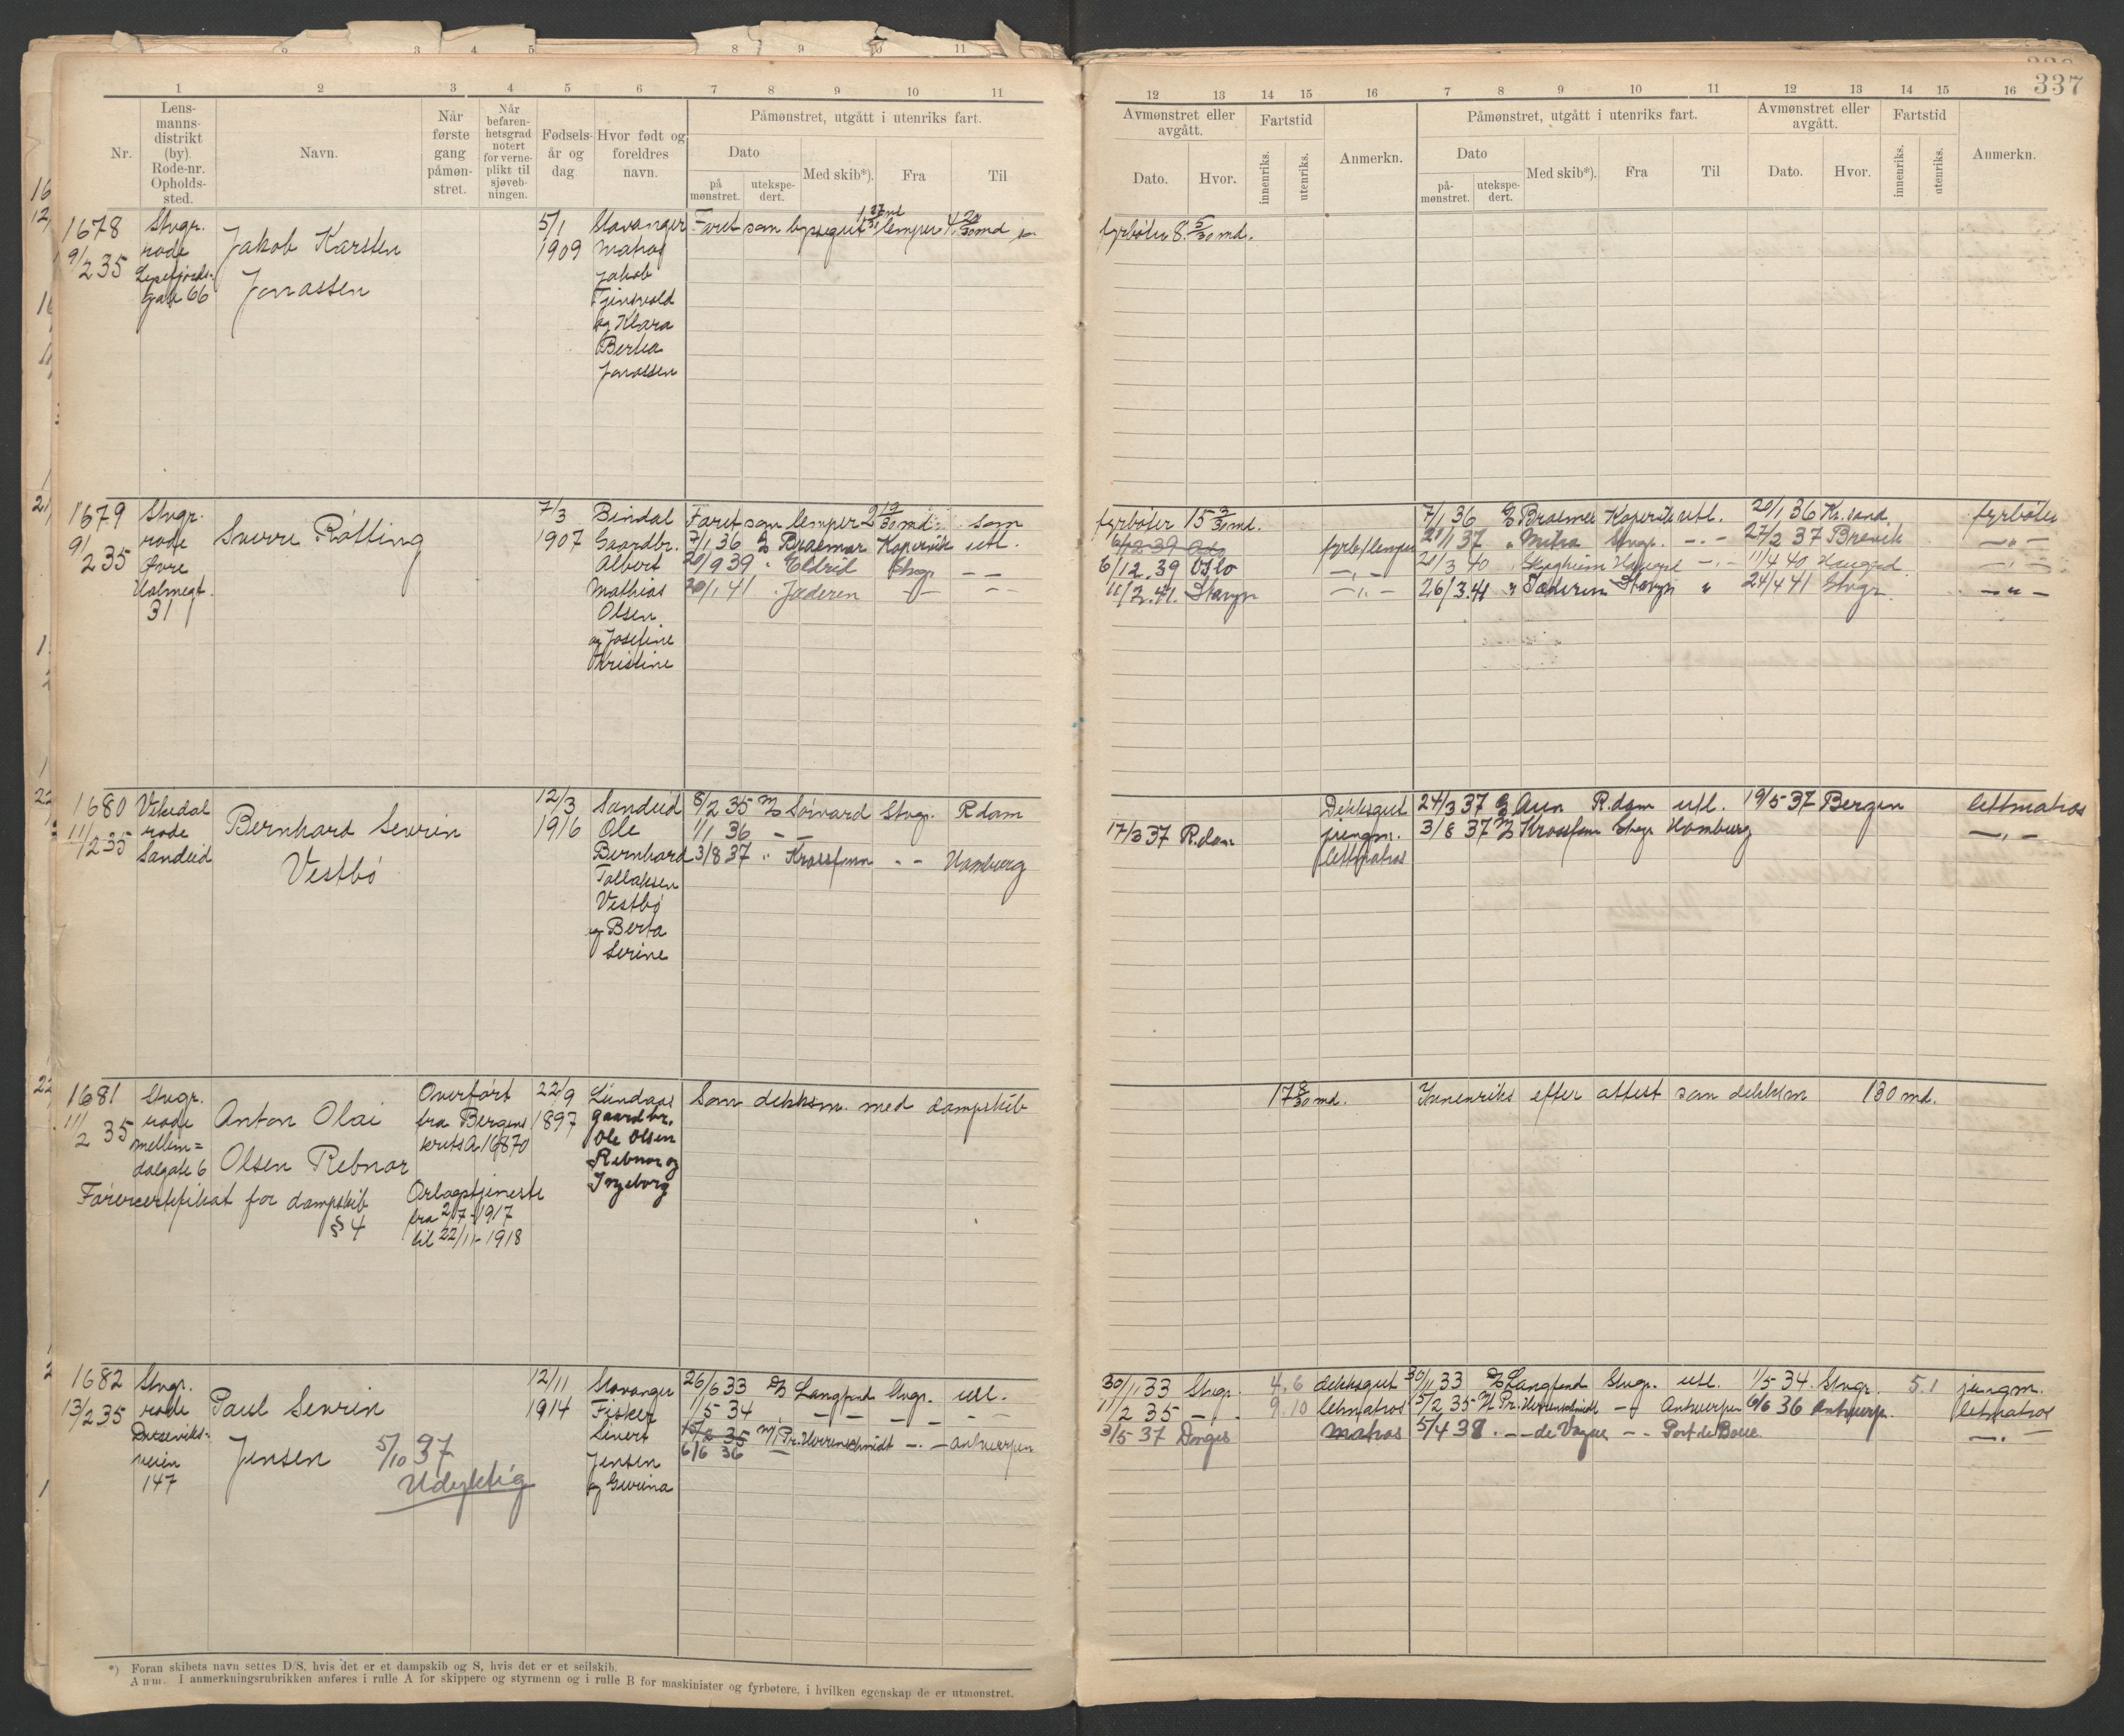 337
1 2 3 4 5 6 7 8 9 10 11
12 13 14 15 16 7 8 9 10 11 12 13 14 15 16
Nr.
Lens-
manns-
distrikt
(by).
Rode-nr.
Opholds-
sted.
Navn.
Når
første
gang
påmøn-
stret.
Når
befaren-
hetsgrad
notert
for verne-
plikt til
sjøveb-
ningen.
Fødsels-
år og
dag
Hvor født og
foreldres
navn.
Påmønstret, utgått i utenriks fart.
Dato
på
mønstret.
utekspe-
dert.
Med skib*).
Fra
Til
Avmønstret eller
avgått.
Dato.
Hvor.
Fartstid
innenriks.
utenriks.
Anmerkn.
Påmønstret, utgått i utenriks fart.
Dato
på-
mønstret.
utekspe-
dert.
Med skib*).
Fra
Til
Avmønstret eller
avgått.
Dato.
Hvor.
Fartstid
innenriks.
utenriks.
Anmerkn.
1678
9/2 35
Stvgr.
rode
gate 66
Jakob Karsten
Jonassen
5/1
1909
Stavanger
Matros
Jakob
og Klara
Berta
Jonassen
Faret som lemper
fyrbøter 8 5/30 md.
1679
9/2 35
Stvgr.
rode
Øvre
Holmegt.
31
Sverre Røtting
7/3
1907
Bindal
Gaardbr.
Albert
Mathias
Olsen
og Josefine
Kristine
Faret som lemper 2 md. som
fyrbøter 15 3/30 md.
7/1 36 Braemar Kopervik utl.
20/9 39 " Eldrid Stvgr — —
20/1 41 Jæderen — —
fyrb/lemper
6/12 39 Oslo — " —
11/2 41. Stavgr — " —
7/1 36 Braemar Kopervik utl. 20/1 36 Kr.sand. fyrbøter
21/1 37 " Mitra Stvgr. — " — 27/2 37 Brevik — " —
21/3 40 — " — 11/4 40 Haugsd. — " —
26/3 41 " Jæderen Stavgr " 24/4 41 Stvgr. — " —
1680
11/2 35
Vikedal
rode
Sandeid
Bernhard Sevrin
Vestbø
12/3
1916
Sandeid
Ole
Bernhard
Tollaksen
Vestbø
og Berta
Serine
8/2 35 Sørvard Stvgr. R.dam
1/1 36 — —
3/8 37 " Krossfonn — " — Hamburg
Dekksgut
17/3 37 R.dam jungm.
lettmatros
24/3 37 Aun R.dam utl. 19/5 37 Bergen lettmatros
3/8 37 Krossfonn Stvgr Hamburg — " —
1681
11/2 35
Stvgr.
rode
Mellem=
dalgate 6
Anton Olai
Olsen Rebnor
Førercertifikat for dampskib
§ 4
Overført
fra Bergens
krets A 16870
Orlogstjeneste
fra 2/7 - 1917
til 22/11 - 1918
22/9
1897
Lindaas
gaardbr.
Ole Olsen
Rebnor og
Ingeborg
Som dekksm. med dampskib
17 8/30 md.
Innenriks efter attest som dekksm 130 md.
1682
13/2 35
Stvgr.
rode
veien
147
Paul Sevrin
Jensen
5/10 37
Udyktig
12/11
1914
Stavanger
Fisker
Sivert
Jensen
og Severina
26/6 33 Langfond Stvgr. utl.
1/5 34 — — — —
15/2 35 — " — Antwerpen
6/6 36 —
30/11 33 Stvgr. 4.6 dekksgut
11/2 35 — " — 9.10 letmatros
3/5 37 Donges Matros
30/11 33 Langfond Stvgr. utl. 1/5 34. Stvgr. 5.1 jungm.
15/2 35 — " — Antwerpen 6/6 36 Antwerp. letmatros
5/4 38 . — — de Vaque — " — Port de Bouc — " —
*) Foran skibets navn settes D/S, hvis det er et dampskib og S, hvis det er et seilskib.
Anm. I anmerkningsrubrikken anføres i rulle A for skippere og styrmenn og i rulle B for maskinister og fyrbøtere, i hvilken egenskap de er utmønstret.